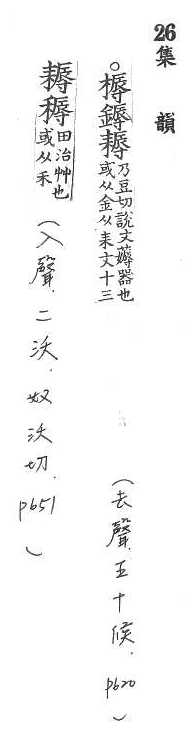 26集 韻
○槈鎒耨乃豆切說文薅器也或从金从耒文十三
(去聲.五十候. p620)
耨䅶田治艸也或从禾
(入聲.二沃.奴沃切. p651)